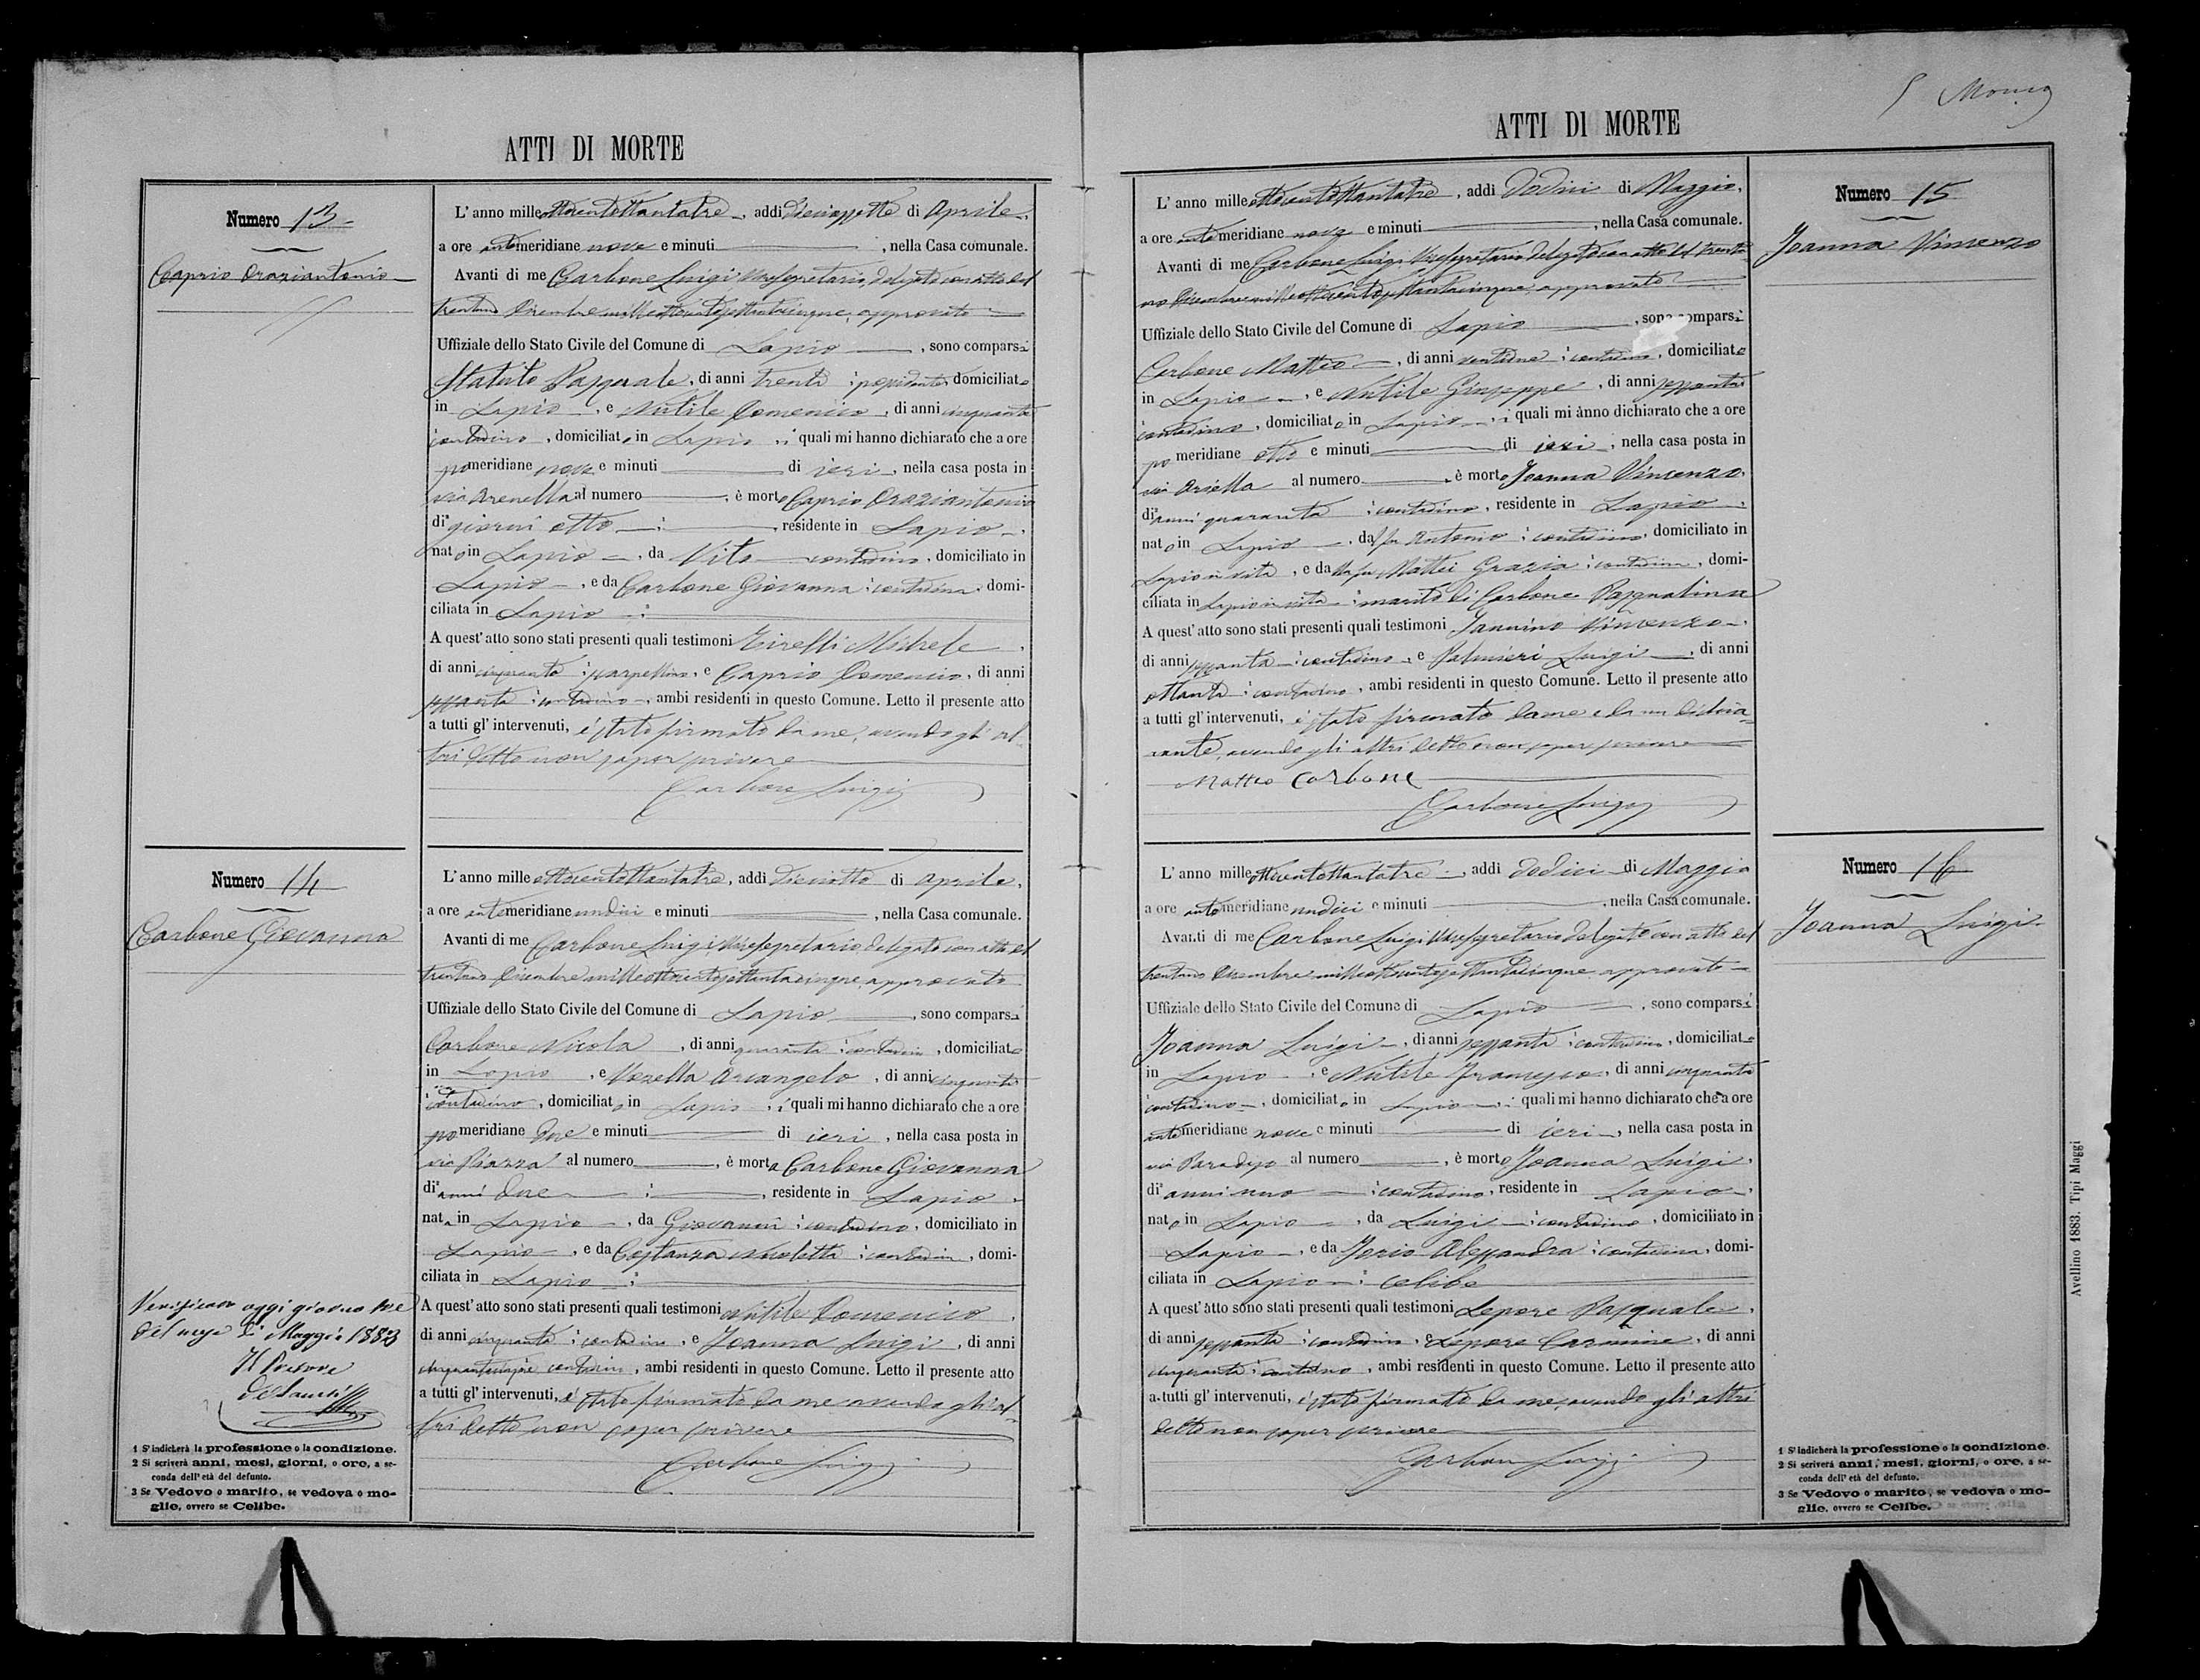 ATTI DI MORTE
Numero 13
Caprio Oraziantonio
L'anno milleottocentottantatre, addi diciassette di Aprile,
a ore antemeridiane nove e minuti , nella Casa comunale.
Avanti di me Carbone Luigi Vicesegretario, delegato con atto del
trentuno Dicembre milleottocentosettantacinque, approvato
Uffiziale dello Stato Civile del Comune di Lapio , sono comparsi
Statuto Pasquale, di anni trenta possidente, domiciliato
in Lapio , e Nutile Domenico , di anni cinquanta
contadino , domiciliato in Lapio , i quali mi hanno dichiarato che a ore
pomeridiane nove e minuti di ieri , nella casa posta in
via Arenella al numero , è morto Caprio Oraziantonio
di giorni otto , residente in Lapio ,
nato in Lapio , da Vito contadino , domiciliato in
Lapio , e da Carbone Giovanna contadina , domi-
ciliata in Lapio
A quest'atto sono stati presenti quali testimoni Michele ,
di anni cinquanta scarpellino, e Caprio Domenico, di anni
sessanta contadino , ambi residenti in questo Comune. Letto il presente atto
a tutti gl'intervenuti, è stato firmato da me, avendo gli al-
tri detto non saper scrivere
Carbone Luigi
Numero 14
Carbone Giovanna
L'anno milleottocentottantatre, addi diciotto di Aprile,
a ore antemeridiane undici e minuti , nella Casa comunale.
Avanti di me Carbone Luigi, Vicesegretario, delegato con atto del
trentuno Dicembre milleottocentosettantacinque, approvato
Uffiziale dello Stato Civile del Comune di Lapio , sono comparsi
Carbone Nicola , di anni quaranta contadino , domiciliato
in Lapio , e Arcangelo , di anni cinquanta
contadino , domiciliato in Lapio , i quali mi hanno dichiarato che a ore
pomeridiane due e minuti di ieri , nella casa posta in
via Piazza al numero , è morta Carbone Giovanna
di anni due , residente in Lapio ,
nata in Lapio , da Giovanni contadino , domiciliato in
Lapio , e da Costanza Nicoletta contadina , domi-
ciliata in Lapio
A quest'atto sono stati presenti quali testimoni Nutile Domenico ,
di anni cinquanta contadino , e Joanna Luigi , di anni
cinquantacinque contadino , ambi residenti in questo Comune. Letto il presente atto
a tutti gl'intervenuti, è stato firmato da me avendo gli al-
tri detto non saper scrivere
Carbone Luigi
Verificato oggi giorno tre
del mese di Maggio 1883
Il Pretore
1 S'indicherà la professione o la condizione.
2 Si scriverà anni, mesi, giorni, o ore, a se-
conda dell'età del defunto.
3 Se Vedovo o marito, se vedova o mo-
glie, ovvero se Celibe.
ATTI DI MORTE
Numero 15
Joanna Vincenzo
L'anno milleottocentottantatre , addi dodici di Maggio,
a ore antemeridiane nove e minuti , nella Casa comunale.
Avanti di me Carbone Luigi, Vicesegretario delegato con atto del trentu-
no Dicembre milleottocentosettantacinque, approvato
Uffiziale dello Stato Civile del Comune di Lapio , sono comparsi
Carbone Matteo , di anni ventidue contadino , domiciliato
in Lapio , e Nutile Giuseppe , di anni sessanta
contadino , domiciliato in Lapio , i quali mi ànno dichiarato che a ore
pomeridiane otto e minuti di ieri , nella casa posta in
via Ariella al numero è morto Joanna Vincenzo
di anni quaranta contadino , residente in Lapio
nato in Lapio , dal fu Antonio contadino , domiciliato in
Lapio in vita , e dalla fu Mattei Grazia contadina , domi-
ciliata in Lapio in vita marito di Carbone Pasqualina
A quest'atto sono stati presenti quali testimoni Vincenzo
di anni sessanta contadino , e Palmieri Luigi , di anni
ottanta contadino , ambi residenti in questo Comune. Letto il presente atto
a tutti gl'intervenuti, è stato firmato da me e da un dichia-
rante, avendo gli altri detto non saper scrivere
Matteo Carbone
Carbone Luigi
Numero 16
Joanna Luigi
L'anno milleottocentottantatre , addi dodici di Maggio
a ore antemeridiane undici e minuti , nella Casa comunale.
Avanti di me Carbone Luigi Vicesegretario delegato con atto del
trentuno Dicembre milleottocentosettantacinque, approvato
Uffiziale dello Stato Civile del Comune di Lapio , sono comparsi
Joanna Luigi , di anni sessanta contadino , domiciliato
in Lapio , e Nutile Francesco , di anni cinquanta
contadino , domiciliato in Lapio , i quali mi hanno dichiarato che a ore
antemeridiane nove e minuti di ieri , nella casa posta in
via Paradiso al numero , è morto Joanna Luigi ,
di anni uno contadino , residente in Lapio ,
nato in Lapio , da Luigi contadino , domiciliato in
Lapio , e da Iorio Alessandra contadina , domi-
ciliata in Lapio celibe
A quest'atto sono stati presenti quali testimoni Lepore Pasquale ,
di anni sessanta contadino , e Lepore Carmine , di anni
cinquanta contadino , ambi residenti in questo Comune. Letto il presente atto
a tutti gl'intervenuti, è stato firmato da me, avendo gli altri
detto non saper scrivere
Carbone Luigi
1 S'indicherà la professione o la condizione.
2 Si scriverà anni, mesi, giorni, o ore, a se-
conda dell'età del defunto.
3 Se Vedovo o marito, se vedova o mo-
glie, ovvero se Celibe.
Avellino 1883. Tipi Maggi